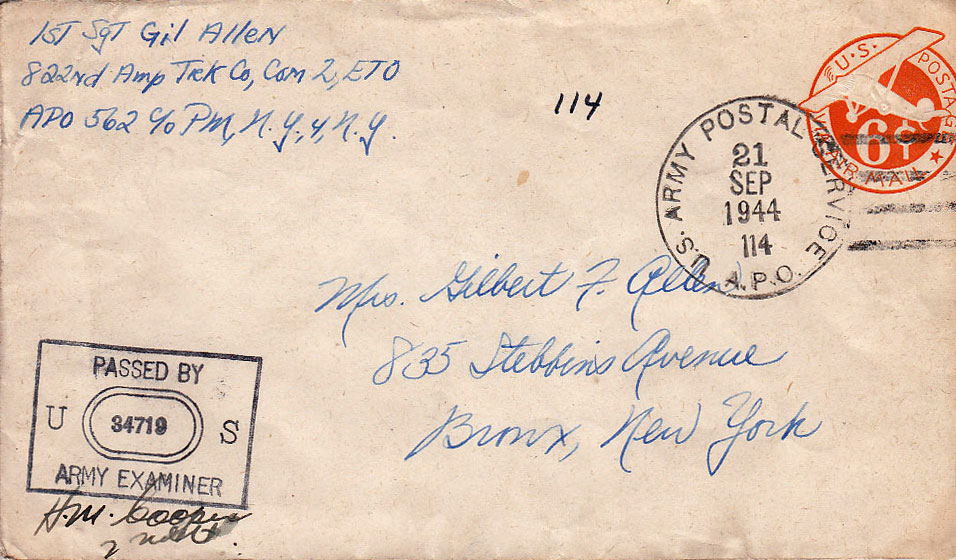 1st Sgt Gil Allen
822nd Amp Trk Co, Com Z, ETO
APO 562 c/o PM, N.Y, 4, N.Y.
114
U.S. POSTAGE
6¢
VIA AIR MAIL
U.S. ARMY POSTAL SERVICE
21
SEP
1944
114
A.P.O.
Mrs. Gilbert F. Allen
835 Stebbins Avenue
Bronx, New York
PASSED BY
U 34719 S
ARMY EXAMINER
H.M. Cooper